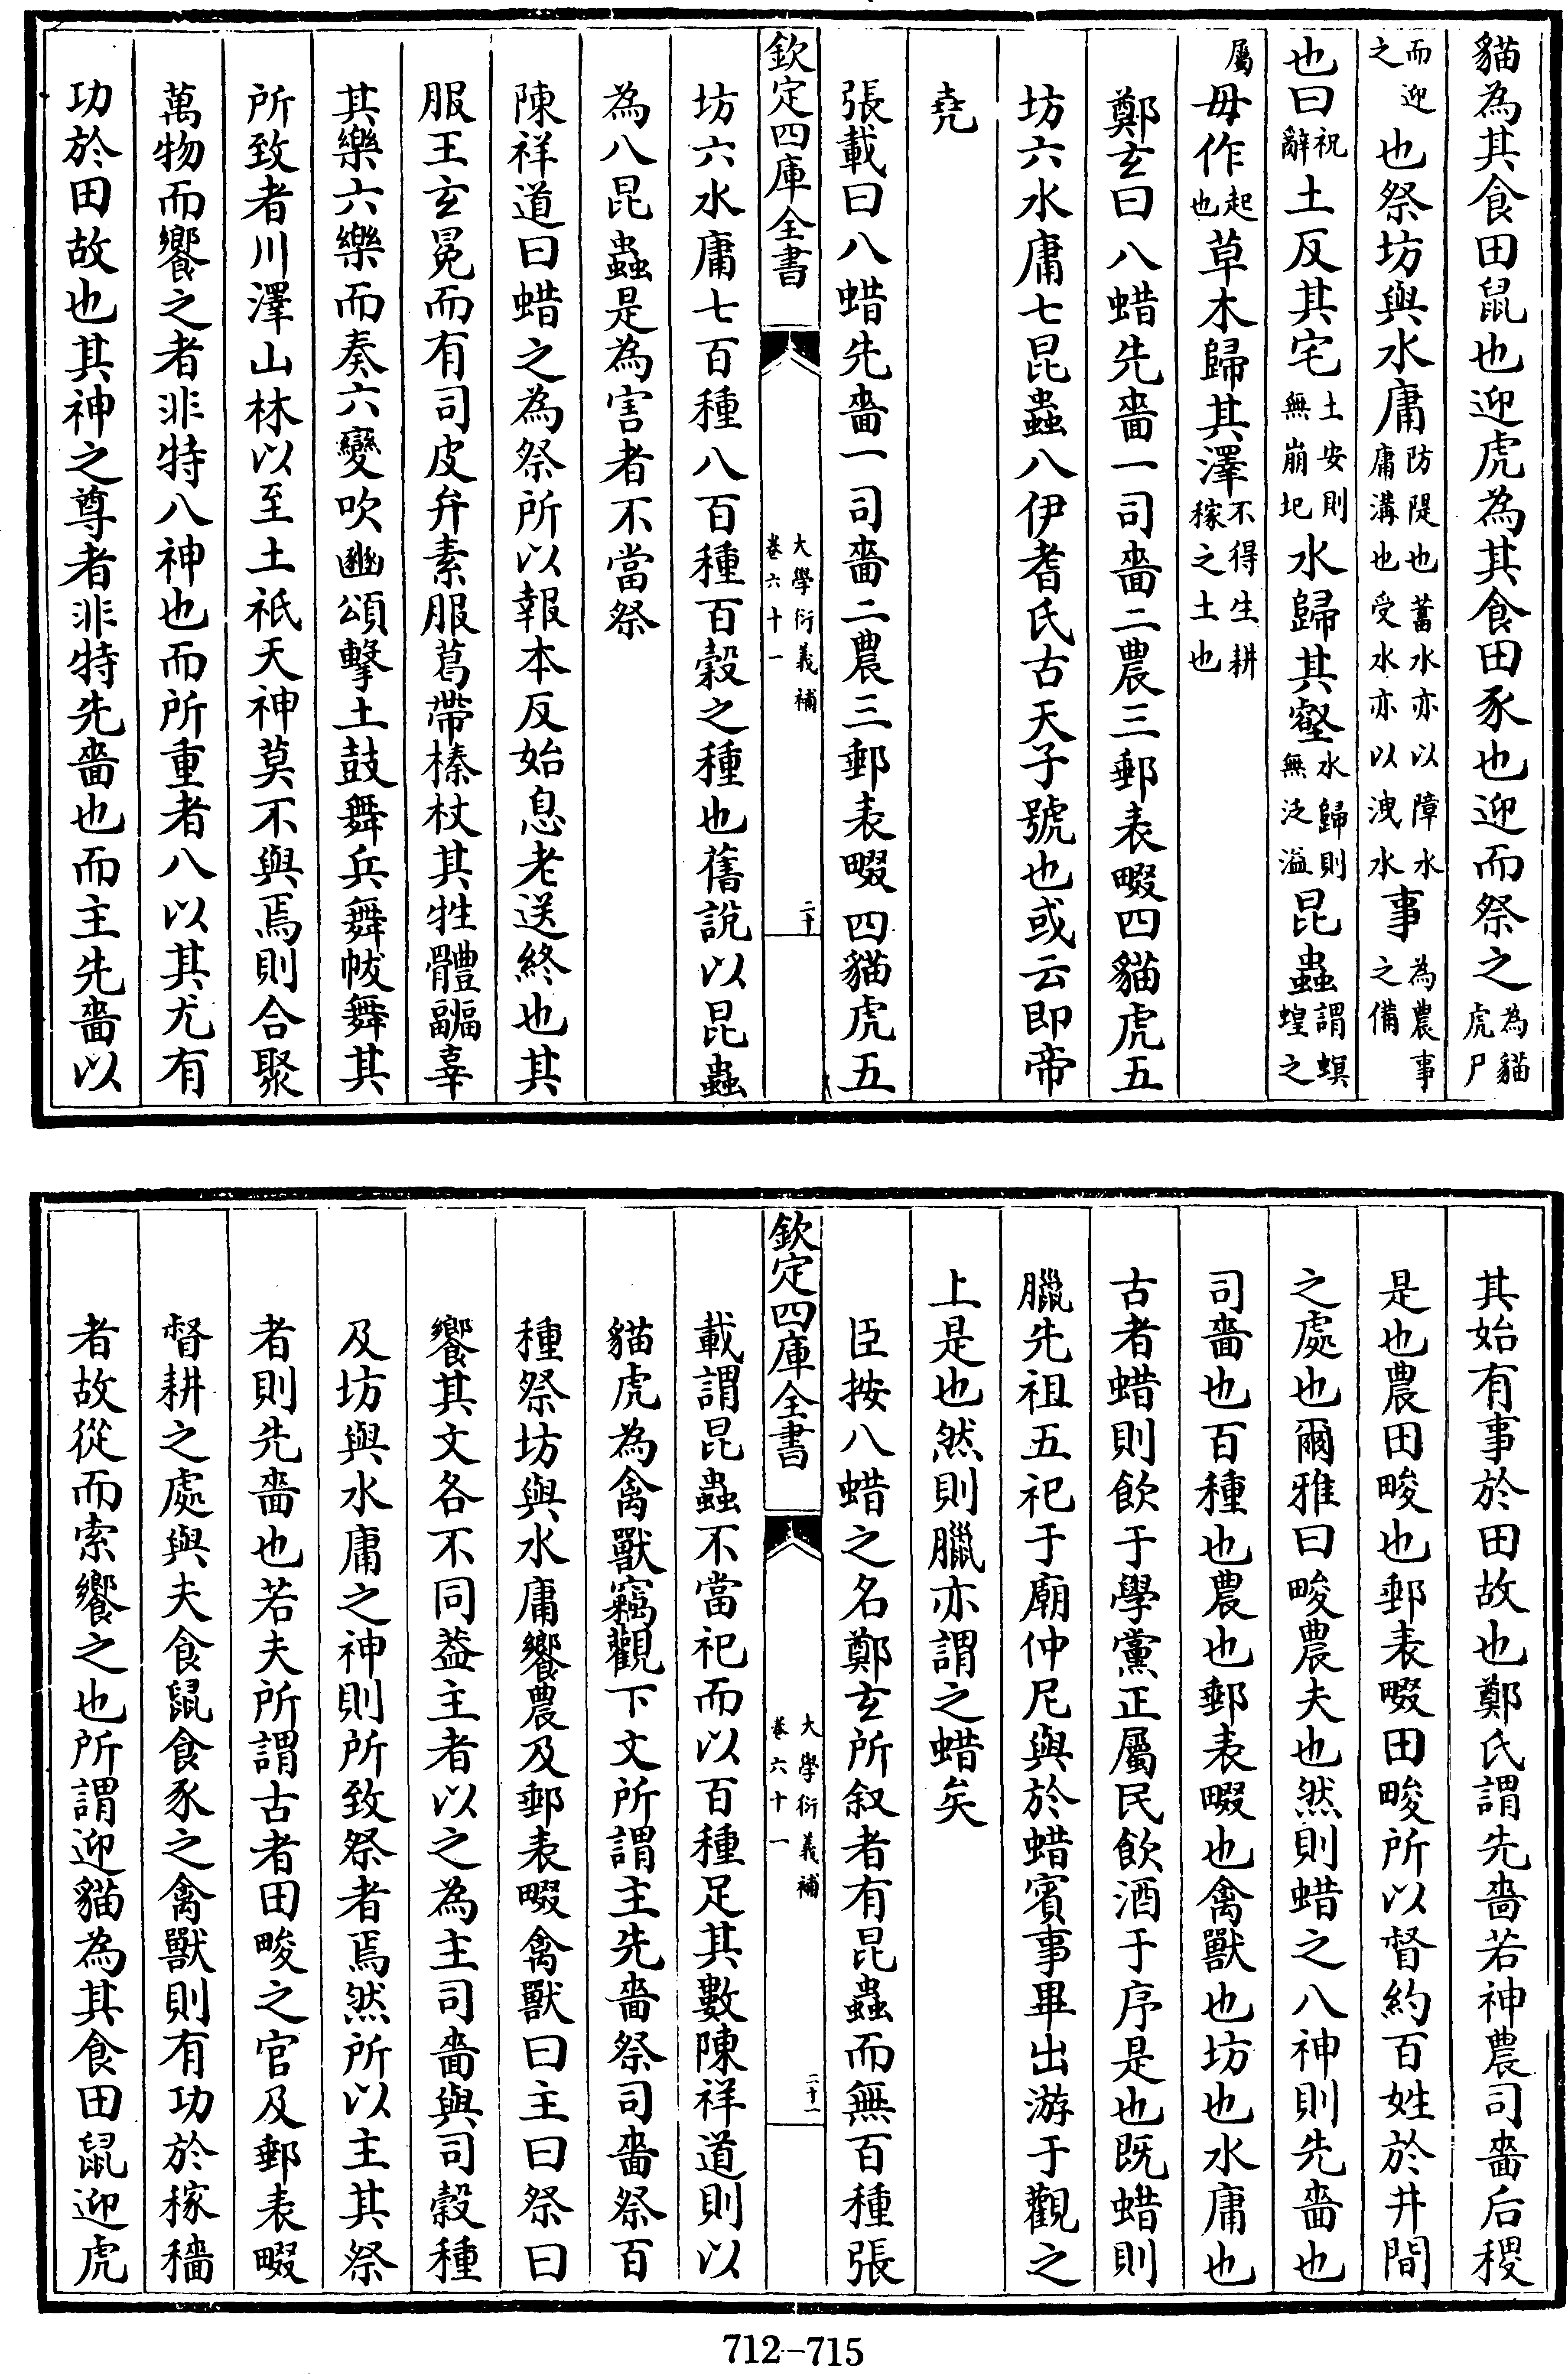 貓為其食田鼠也迎虎為其食田豕也迎而祭之為貓虎尸
而迎之也祭坊與水庸防隄也蓄水亦以障水庸溝也受水亦以洩水事為農事之備
也曰祝辭土反其宅土安則無崩圮水歸其壑水歸則無泛溢昆蟲謂螟蝗之
屬毋作起也草木歸其澤不得生耕稼之土也
鄭玄曰八蜡先嗇一司嗇二農三郵表畷四貓虎五
坊六水庸七昆蟲八伊耆氏古天子號也或云即帝
堯
張載曰八蜡先嗇一司嗇二農三郵表畷四貓虎五
欽定四庫全書
大學衍義補
卷六十一
二十
坊六水庸七百種八百種百穀之種也舊說以昆蟲
為八昆蟲是為害者不當祭
陳祥道曰蜡之為祭所以報本反始息老送終也其
服王玄冕而有司皮弁素服葛帶榛杖其牲體疈辜
其樂六樂而奏六變吹豳頌擊土鼓舞兵舞帗舞其
所致者川澤山林以至土祇天神莫不與焉則合聚
萬物而饗之者非特八神也而所重者八以其尤有
功於田故也其神之尊者非特先嗇也而主先嗇以
其始有事於田故也鄭氏謂先嗇若神農司嗇后稷
是也農田畯也郵表畷田畯所以督約百姓於井間
之處也爾雅曰畯農夫也然則蜡之八神則先嗇也
司嗇也百種也農也郵表畷也禽獸也坊也水庸也
古者蜡則飲于學黨正屬民飲酒于序是也既蜡則
臘先祖五祀于廟仲尼與於蜡賓事畢出游于觀之
上是也然則臘亦謂之蜡矣
臣按八蜡之名鄭玄所叙者有昆蟲而無百種張
欽定四庫全書
大學衍義補
卷六十一
二十一
載謂昆蟲不當祀而以百種足其數陳祥道則以
貓虎為禽獸竊觀下文所謂主先嗇祭司嗇祭百
種祭坊與水庸饗農及郵表畷禽獸曰主曰祭曰
饗其文各不同葢主者以之為主司嗇與司穀種
及坊與水庸之神則所致祭者焉然所以主其祭
者則先嗇也若夫所謂古者田畯之官及郵表畷
督耕之處與夫食鼠食豕之禽獸則有功於稼穡
者故從而索饗之也所謂迎貓為其食田鼠迎虎
712-715